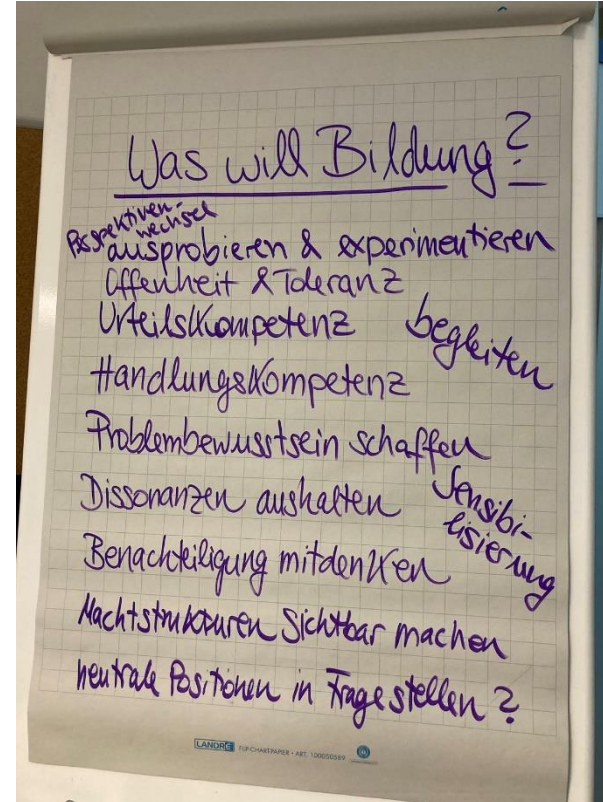 Was will Bildung?
Perspektiven-
wechsel
ausprobieren & experimentieren
Offenheit & Toleranz
Urteilskompetenz
begleiten
Handlungskompetenz
Problembewusstsein schaffen
Sensibi-
lisierung
Dissonanzen aushalten
Benachteiligung mitdenken
Machtstrukturen sichtbar machen
neutrale Positionen in Frage stellen?
LANDRÉ FLIPCHART-PAPIER • ART. 100050589